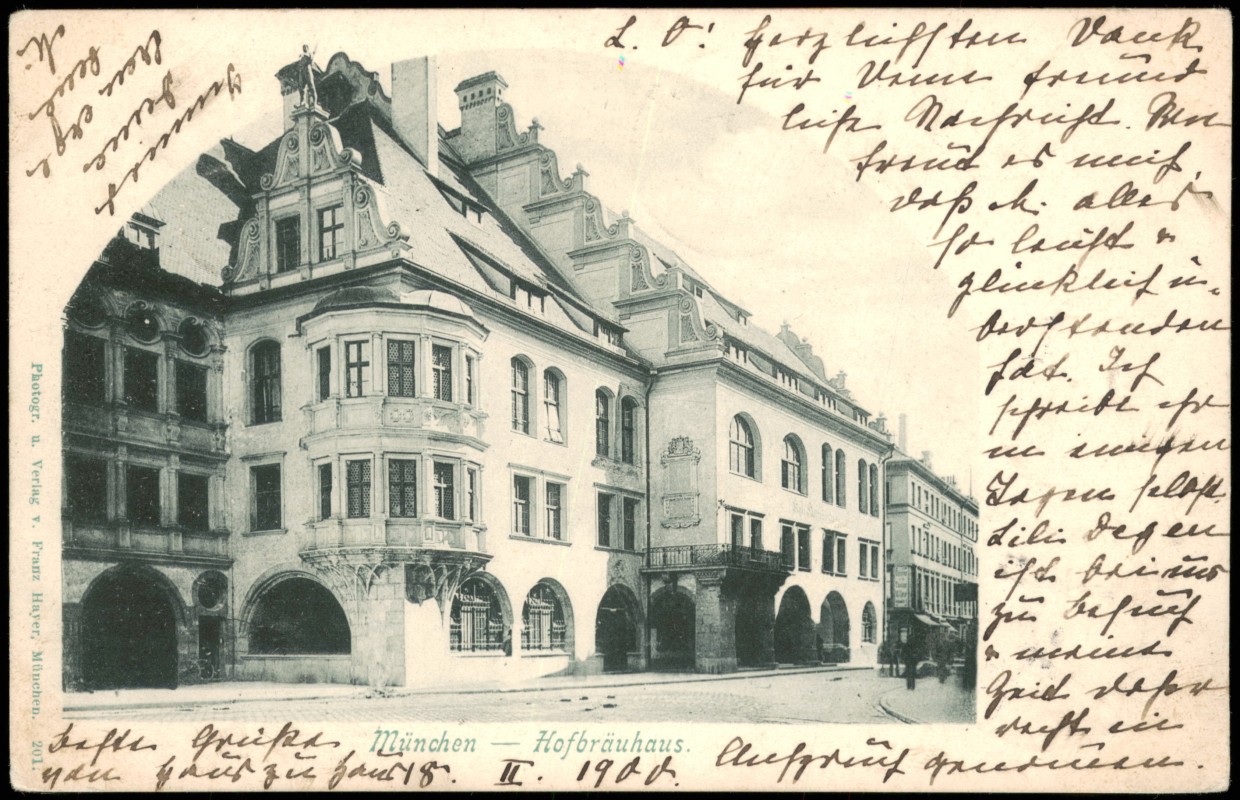 L. O! Herzlichsten Dank
für Deine freund
liche Nachricht. Wie
freut es mich,
daß M. alles
so leicht u
glücklich ü-
berstanden
hat. Ich
schreibe ihr
in einigen
Tagen selbst.
Lili Degen
ist bei uns
zu Besuch
u meine
Zeit daher
recht in
Anspruch genommen.
Beste Grüße
von Haus zu Haus 18. II. 1900.
München — Hofbräuhaus.
Photogr. u. Verlag v. Franz Hayer, München. 201.